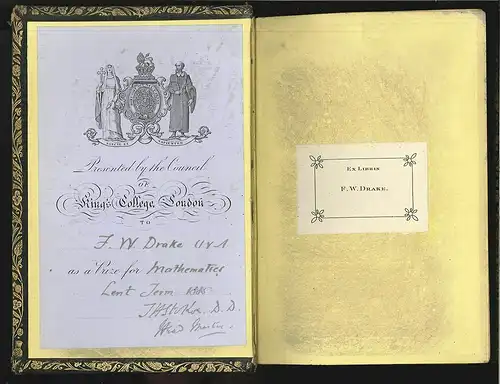 SANCTE ET SAPIENTER
Presented by the Council
OF
King's College, London
TO
F. W. Drake
as a Prize for Mathematics
Lent Term 1885
D. D.
Head Master.
EX LIBRIS
F. W. DRAKE.